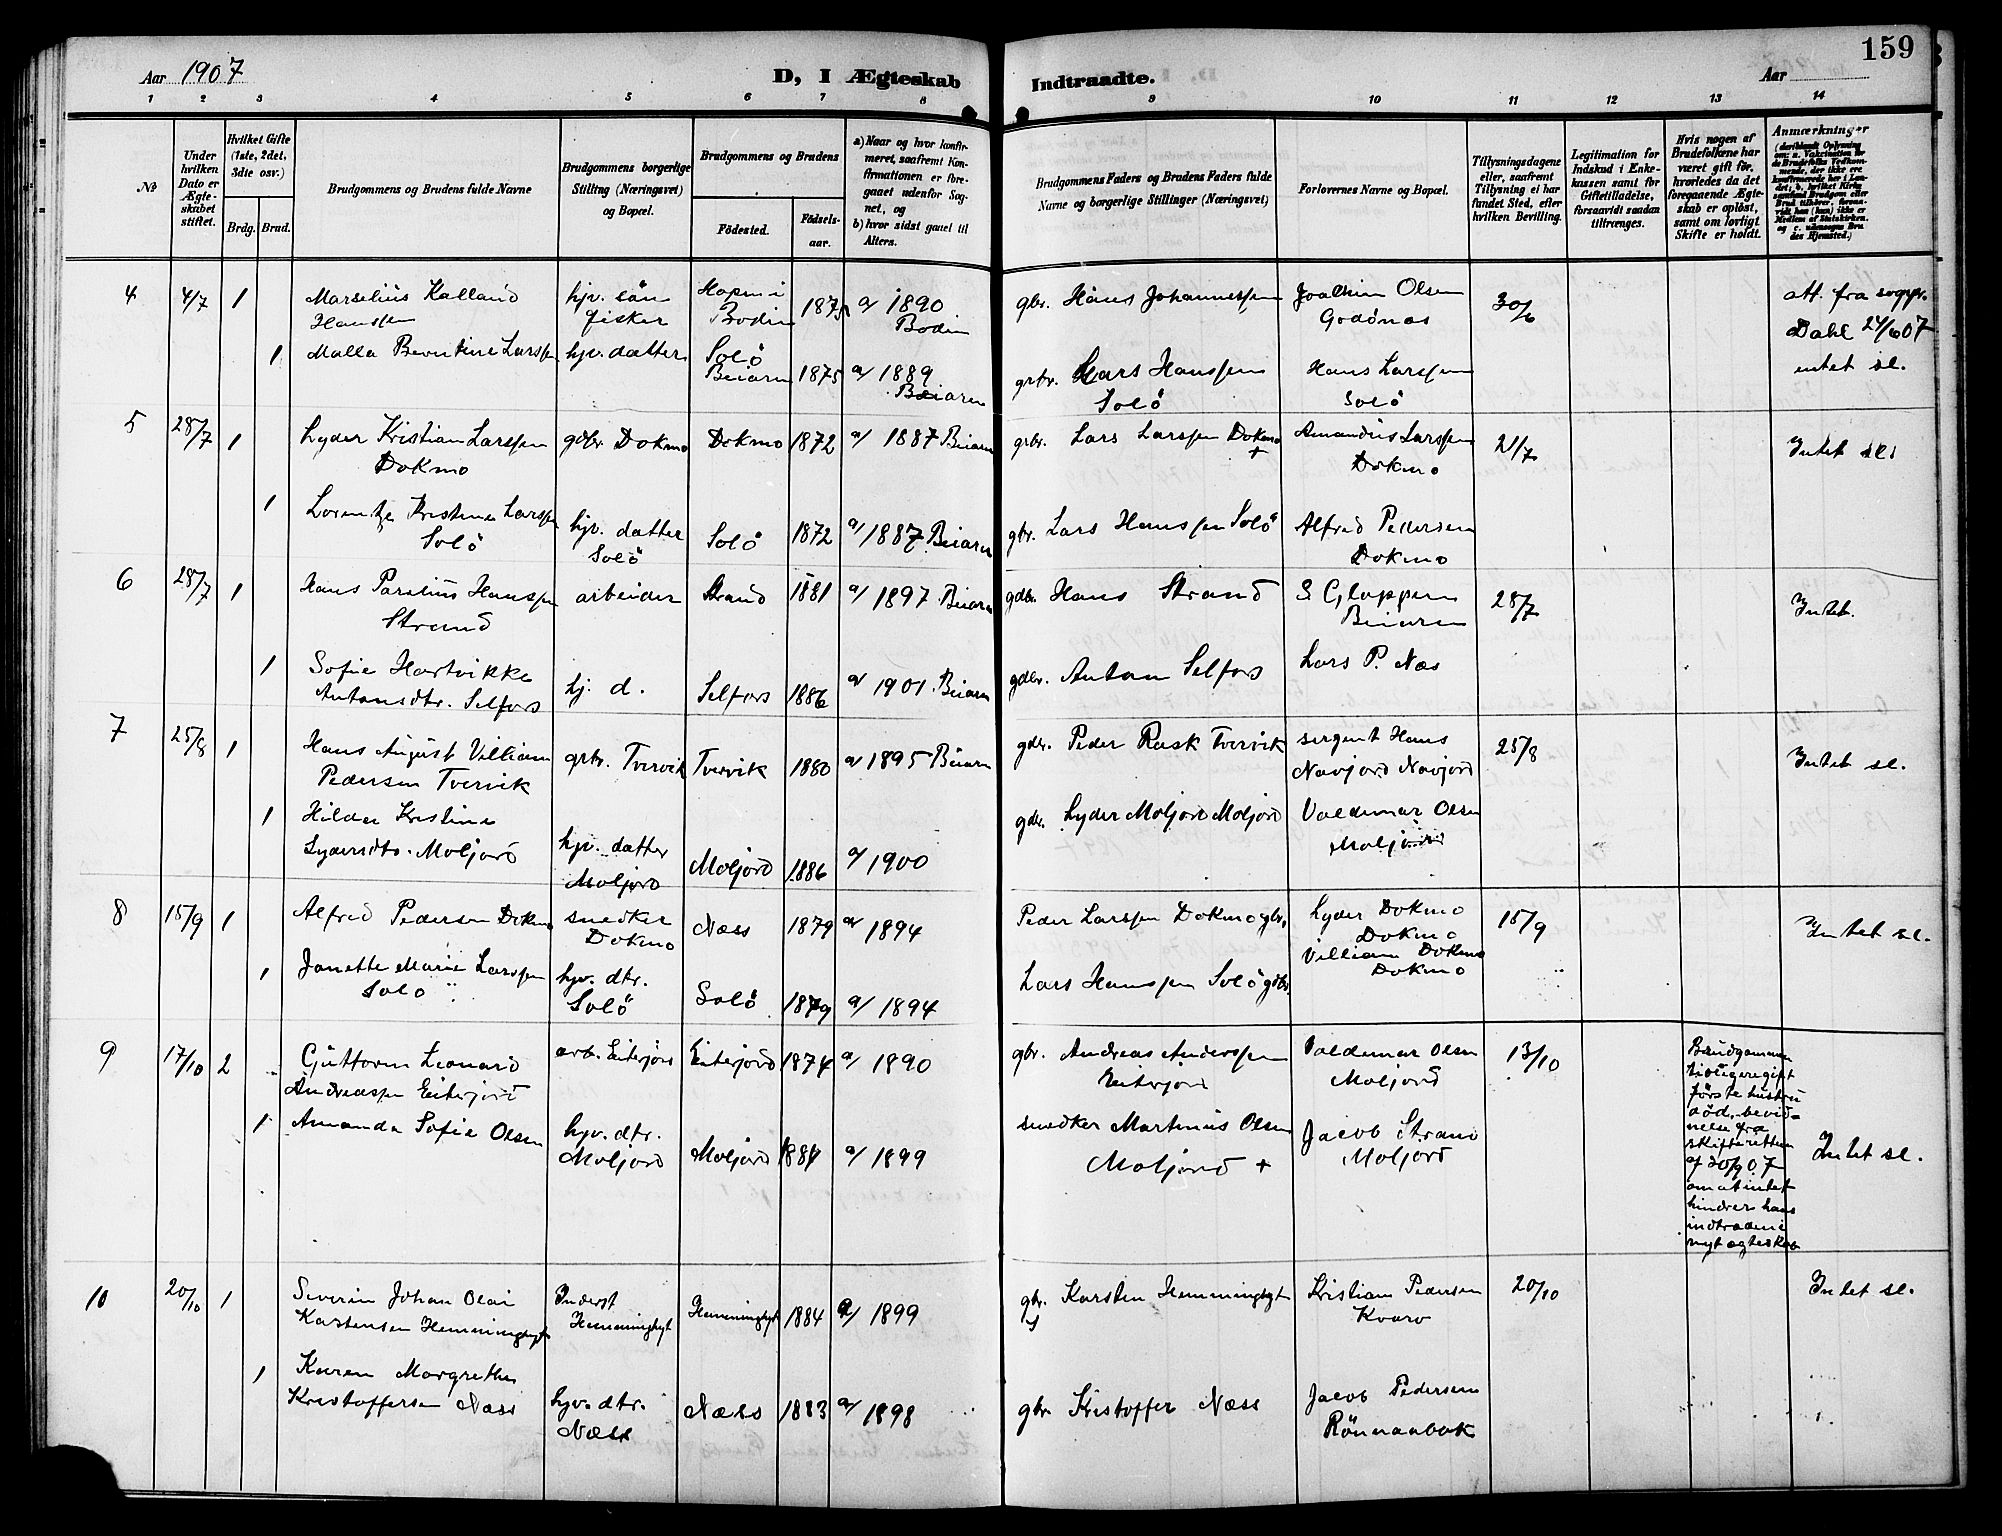 159
Aar 1907
D, I Ægteskab
Indtraadte.
Aar
1 2 3 4 5 6 7 8 9 10 11 12 13 14
No
Under hvilken Dato er Ægteskabet stiftet.
Hvilket Gifte (1ste, 2det, 3die osv.)
Brdg. Brud.
Brudgommens og Brudens fulde Navne
Brudgommens borgerlige Stilling (Næringsvei) og Bopæl.
Brudgommens og Brudens
Födested.
Födselsaar.
a) Naar og hvor konfirmeret, saafremt Konfirmationen er foregaaet udenfor Sognet, og
b) hvor sidst gaaet til Alters.
Brudgommens Faders og Brudens Faders fulde Navne og borgerlige Stillinger (Næringsvei)
Forlovernes Navne og Bopæl.
Tillysningsdagene eller, saafremt Tillysning ei har fundet Sted, efter hvilken Bevilling.
Legitimation for Indskud i Enkekassen samt för Giftetilladelse, forsaavidt saadan tiltrænges.
Hvis nogen af Brudefolkene har været gift för, hvorledes da det foregaaende Ægteskab er oplöst, samt om lovligt Skifte er holdt.
Anmærkninger
4 4/7 1 Marselius Kalland Hanssen hjv. sön fisker Hopen i Bodin 1875 a/ 1890 Bodin gbr. Hans Johannessen Joachim Olsen Godönas 30/6 att. fra sogpr. Dahl 24/6 07
1 Malla Berntine Larssen hjv. datter Solö Beiarn 1875 a/ 1889 Beiarn grbr. Lars Hanssen Solö Hans Larssen Solö intet sl.
5 28/7 1 Lyder Kristian Larssen Dokmo gdbr Dokmo Dokmo 1872 a/ 1887 Beiarn grbr. Lars Larssen Dokmo + Amandus Larssen Dokmo 21/7 Intet sl.
1 Lorentze Kristine Larssen Solö hjv. datter Solö Solö 1872 a/ 1887 Beiarn gbr. Lars Hanssen Solö Alfred Pedersen Dokmo
6 28/7 1 Hans Parelius Hanssen Strand arbeider Strand 1881 a/ 1897 Beiarn gdbr. Hans Strand S. Gloppen Beiarn 28/7 Intet.
1 Sofie Hartvikke Antonsdtr. Selfors hj. d. Selfors 1886 a/ 1901 Beiarn gdbr. Anton Selfors Lars P. Næs
7 25/8 1 Hans August Villiam Pedersen Tvervik grbr. Tvervik Tvervik 1880 a/ 1895 Beiarn gdbr. Peder Rask Tvervik sergent Hans Navjord Navjord 25/8 Intet sl.
1 Hilda Kristine Lydersdtr. Moljord hjv. datter Moljord Moljord 1886 a/ 1900 gdbr. Lyder Moljord Moljord Valdemar Olsen Moljord
8 15/9 1 Alfred Pedersen Dokmo snedker Dokmo Næss 1879 a/ 1894 Peder Larssen Dokmo gbr. Lyder Dokmo Dokmo 15/9 Intet sl.
1 Janette Marie Larssen Solö hjv. dtr. Solö Solö 1879 a/ 1894 Lars Hanssen Solö gdbr. Villiam Dokmo Dokmo
9 17/10 2 Guttorm Leonard Andreassen Eiterjord arb. Eiterjord Eiterjord 1874 a/ 1890 gbr. Andreas Anderssen Eiterjord Valdemar Olsen Moljord 13/10 Brudgommen tidligere gift förste hustru död, bevidnelse fra skifteretten af 30/9 07 om at intet hindrer hans indtræden i nyt ægteskab
1 Amanda Sofie Olsen hjv. dtr. Moljord Moljord 1884 a/ 1899 snedker Martinus Olsen Moljord + Jacob Strand Moljord Intet sl.
10 20/10 1 Severin Johan Olai Karstensen Hemminghyt Inderst Hemminghyt Hemminghyt 1884 a/ 1899 gbr. Karsten Hemminghyt Kristian Pedersen Kvarv 20/10 Intet sl.
1 Karen Margrethe Kristoffersen Næss hjv. dtr. Næss Næss 1883 a/ 1898 gbr Kristoffer Næss Jacob Pedersen Rönnaabak